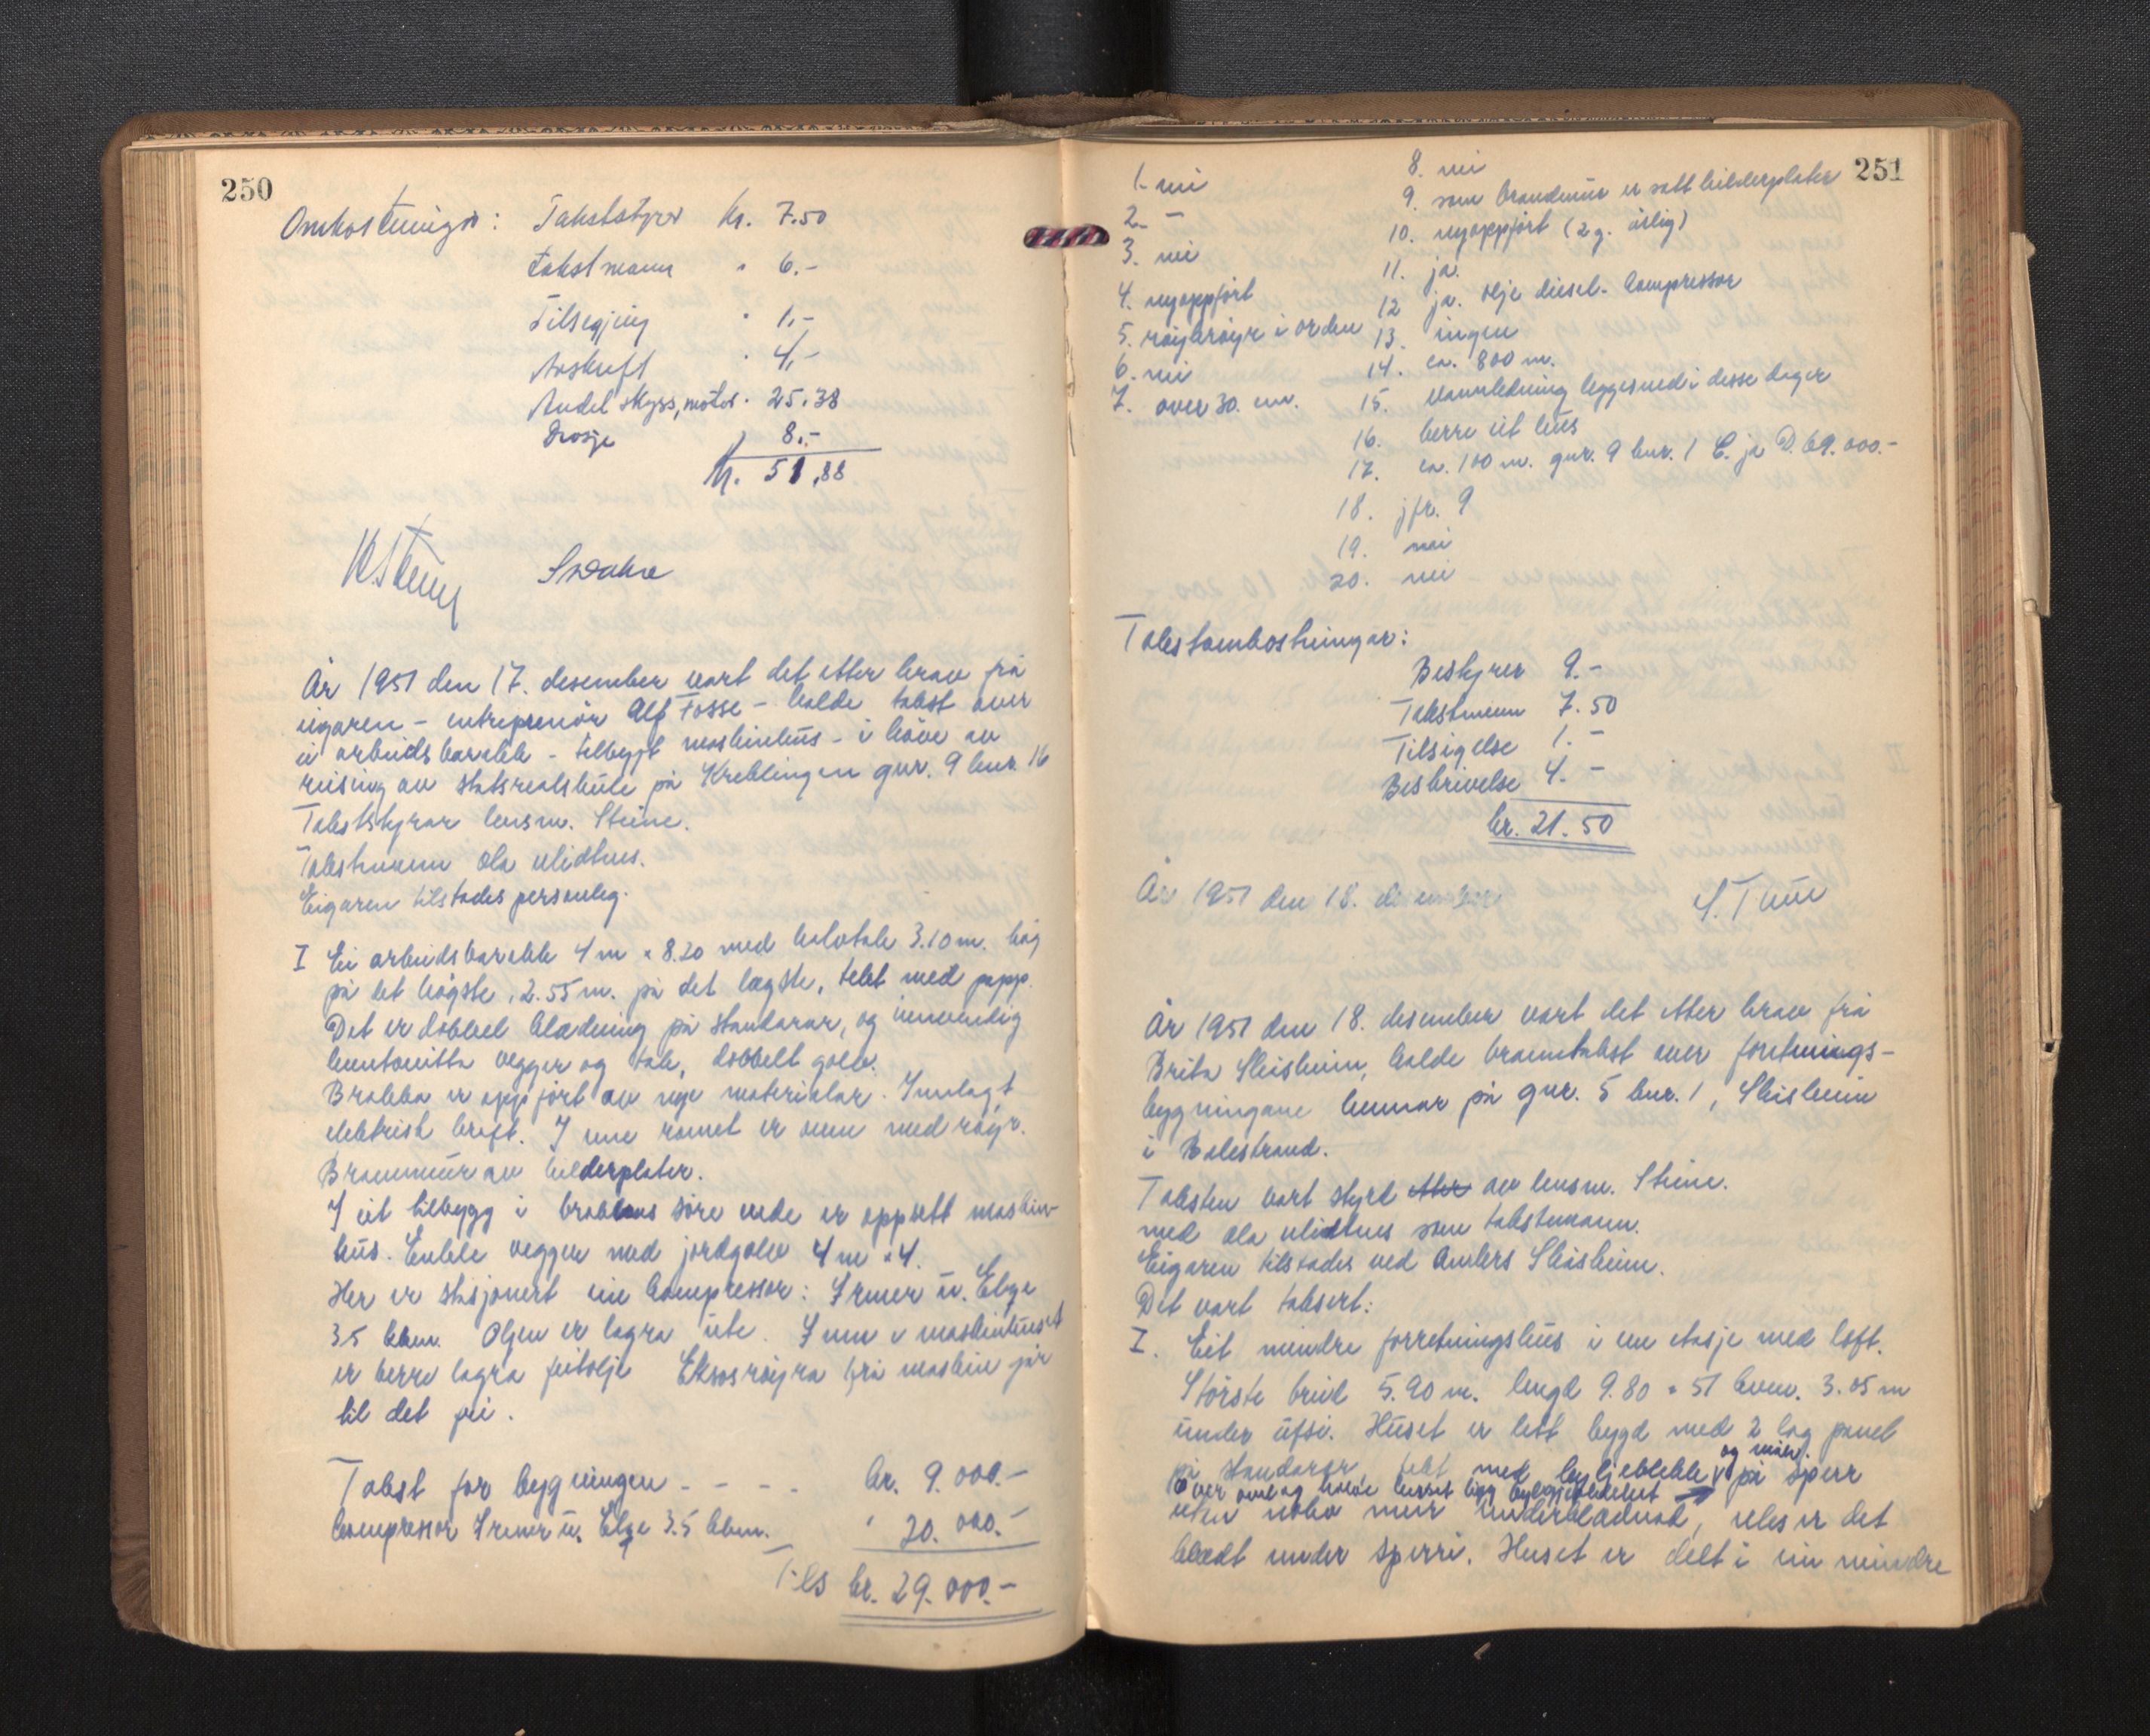 250
Omkostningar: Takststyrer kr. 7.50
takstmann " 6.-
Tilsegjing " 1.-
Avskrift " 4,-
Andel skyss, motor " 25.38
Drosje 8.-
kr. 51,88
År 1951 den 17. desember vart det etter krav frå
eigaren - entreprenör Alf Fosse - halde takst over
ei arbeidsbarakk - tilbygt maskinhus - i höve av
reising av statsrealskule på Kreklingen gnr. 9 bnr. 16
Takststyrar lensm. Steine.
Takstmann Ola
Eigaren tilstades personleg.
I Ei arbeidsbarakk 4 m x 8.20 med halvtak 3.10 m. høg
på det högste, 2.55 m. på det lægste, tekt med papp.
Det er dobbel klædning på standarar, og innvendig
vegger og tak, dobbelt golv.
Brakka er oppfört av nye materialar. Innlagt
elektrisk kraft. I eine romet er omn med röyr.
Brannmur av helderplater.
I eit tilbygg i brakkens söre ende er oppsett maskin-
hus. Enkle vegger med jordgolv 4 m x 4.
Her er stasjonert ein kompressor: Irmer u. Elze
35 kbm. Oljen er lagra ute. Inne i maskinhuset
er berre lagra feitolje Eksosröyra frå maskin går
til det fri.
Takst for bygningen - - - - kr. 9.000.-
Kompressor Irmer u. Elze 3.5 kbm. " 20.000.-
Tils kr. 29.000.-
251
1. nei
2. -
3. nei
4. nyoppfört
5. röykröyr i orden
6. nei
7. over 30. cm.
8. nei
9. som brandmur er satt helderplater
10. nyoppfört (2 g. årlig)
11. ja.
12 ja. olje diesel- kompressor
13. ingen
14. ca. 800 m.
15. vannledning legges ned i desse dager
16. berre eit hus
17. ca. 100 m. gnr. 9 bnr. 1 C. ja D. 69.000.-
18. jfr. 9
19. nei
20. nei
Takstomkostningar:
Bestyrer 9.-
Takstmann 7.50
Tilsigelse 1.-
Beskrivelse 4.-
kr. 21.50
År 1951 den 18. desember
År 1951 den 18. desember vart det etter krav frå
Brita Skåsheim, halde branntakst over forretnings-
bygningane hennar på gnr. 5 bnr. 1, Skåsheim
i Balestrand.
Taksten vart styrd etter av lensm. Steine.
med Ola som takstmann.
Eigaren tilstades ved Anders Skåsheim.
Det vart taksert:
I. Eit mindre forretningshus i ein etasje med loft.
Störste breid 5.90 m. lengd 9.80 = 57 kvm. 3.05 m
under ufsi. Huset er lett bygd med 2 lag panel
på standarar, tekt med bylgjeblekk på sperr
uten noko meir underklædnad, elles er det
klædt under sperri. Huset er delt i ein mindre